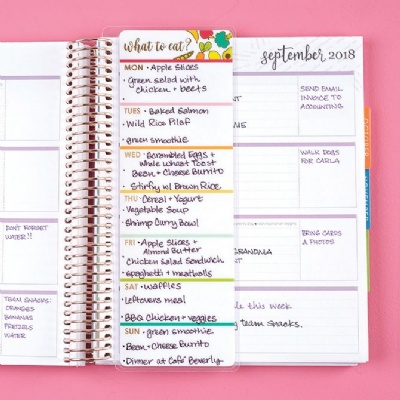 what to eat?
MON • Apple Slices
• Green salad with
chicken + beets
•
TUES • Baked Salmon
• Wild Rice Pilaf
• green smoothie
WED • Scrambled Eggs +
whole wheat Toast
• Bean + Cheese Burrito
• Stirfry w/ Brown Rice
THU • Cereal + Yogurt
• Vegetable Soup
• Shrimp Curry Bowl
FRI • Apple Slices +
Almond Butter
• Chicken Salad Sandwich
• spaghetti + meatballs
SAT • waffles
• Leftovers meal
• BBQ Chicken + veggies
SUN • green smoothie
• Bean + Cheese Burrito
• Dinner at Café Beverly
DON'T FORGET
WATER!!
TEAM SNACKS:
ORANGES
BANANAS
PRETZELS
WATER
september 2018
SEND EMAIL
INVOICE TO
ACCOUNTING
WALK DOGS
FOR CARLA
BRING CARDS
& PHOTOS
GRANDMA
this week
team snacks.